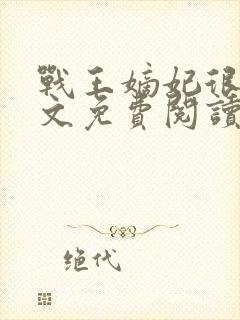 戰王嫡妃很
文免費閱讀
绝代